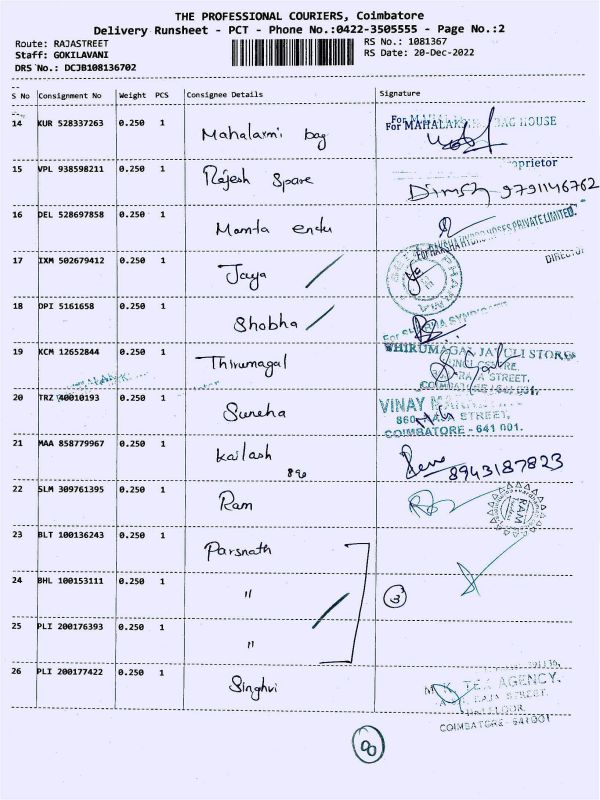 THE PROFESSIONAL COURIERS, Coimbatore
Delivery Runsheet - PCT - Phone No.:0422-3505555 - Page No.:2
Route: RAJASTREET
RS No.: 1081367
Staff: GOKILAVANI
RS Date: 20-Dec-2022
DRS No.: DCJB108136702
S No Consignment No Weight PCS Consignee Details Signature
14 KUR 528337263 0.250 1 Mahalaxmi bag
For MAHALAKSHMI BAG HOUSE
oprietor
15 VPL 938598211 0.250 1 Rajesh Spare
9791146762
16 DEL 528697858 0.250 1 Mamta endu
For RAKSHA HYDRO HOSES PRIVATE LIMITED.
DIRECTOR
17 IXM 502679412 0.250 1 Jaya
PHARMA
18 OPI 5161658 0.250 1 Shobha
19 KCM 12652844 0.250 1 Thirumagal
STORE
STREET,
20 TRZ 40010193 0.250 1 Suneha
VINAY
860, RAJA STREET,
COIMBATORE - 641 001.
21 MAA 858779967 0.250 1 Kailash
8943187823
22 SLM 309761395 0.250 1 Ram
RAM
23 BLT 100136243 0.250 1 Parsnath
24 BHL 100153111 0.250 1 "
3
25 PLI 200176393 0.250 1 "
26 PLI 200177422 0.250 1 Singhvi
TEX AGENCY.
RAJA STREET.
COIMBATORE - 641001